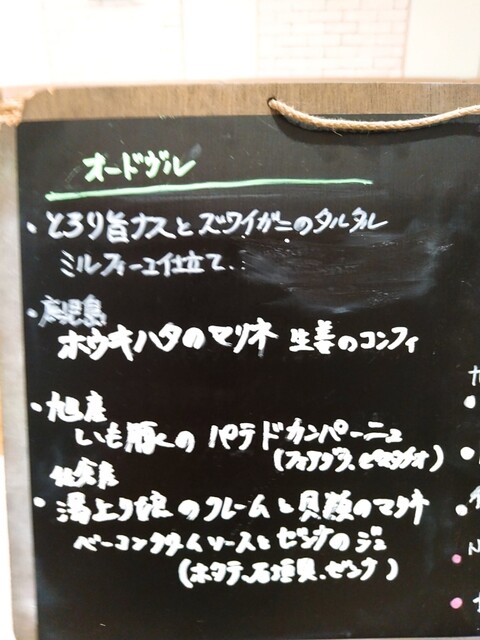 オードヴル
・とろり旨ナスとズワイガニのタルタル
ミルフィーユ仕立て..
・鹿児島
ホウキハタのマリネ 生姜のコンフィ
・旭産
いも豚の パテドカンパーニュ
(フォアグラ.ピスタチオ)
佐倉産
・湯上り娘のクレームと貝類のマリネ
ベーコンクリームソースとゼンナのジュ
(ホタテ.石垣貝.ゼンナ)